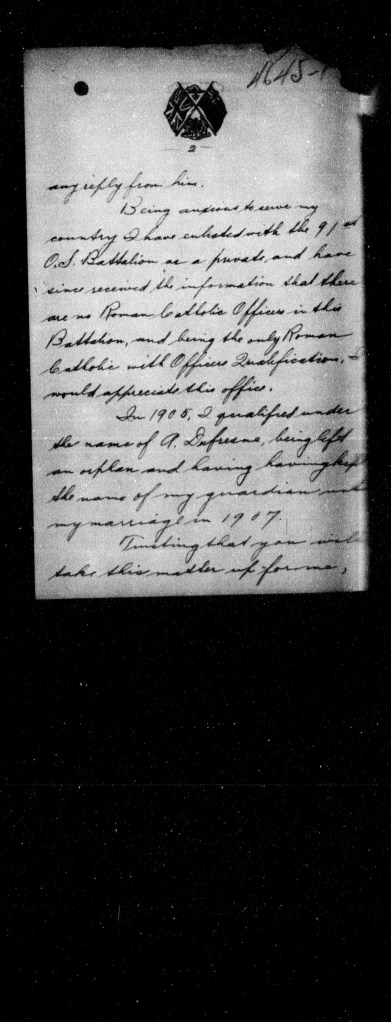 4645-1
2
any reply from him.
Being anxious to serve my
country I have enlisted with the 91st
O.S. Battalion as a private, and have
since received the information that there
are no Roman Catholic Officers in this
Battalion, and being the only Roman
Catholic with Officers Qualification, I
would appreciate this office.
In 1905, I qualified under
the name of A. Dufresne, being left
an orphan and having having kept
the name of my guardian until
my marriage in 1907.
Trusting that you will
take this matter up for me,